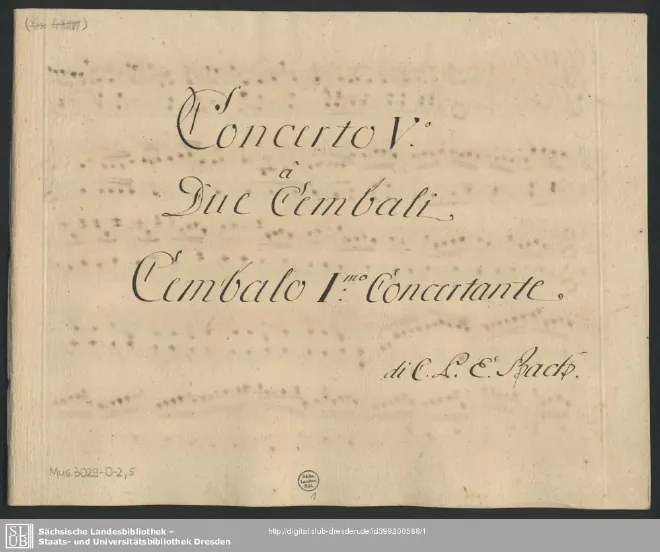 Concerto V.º
â
Due Cembali
Cembalo I.mo Concertante.
di C. P. E. Bach.
Mus. 3029-O-2,5
1
SLUB
Sächsische Landesbibliothek –
Staats- und Universitätsbibliothek Dresden
http://digital.slub-dresden.de/id399200568/1